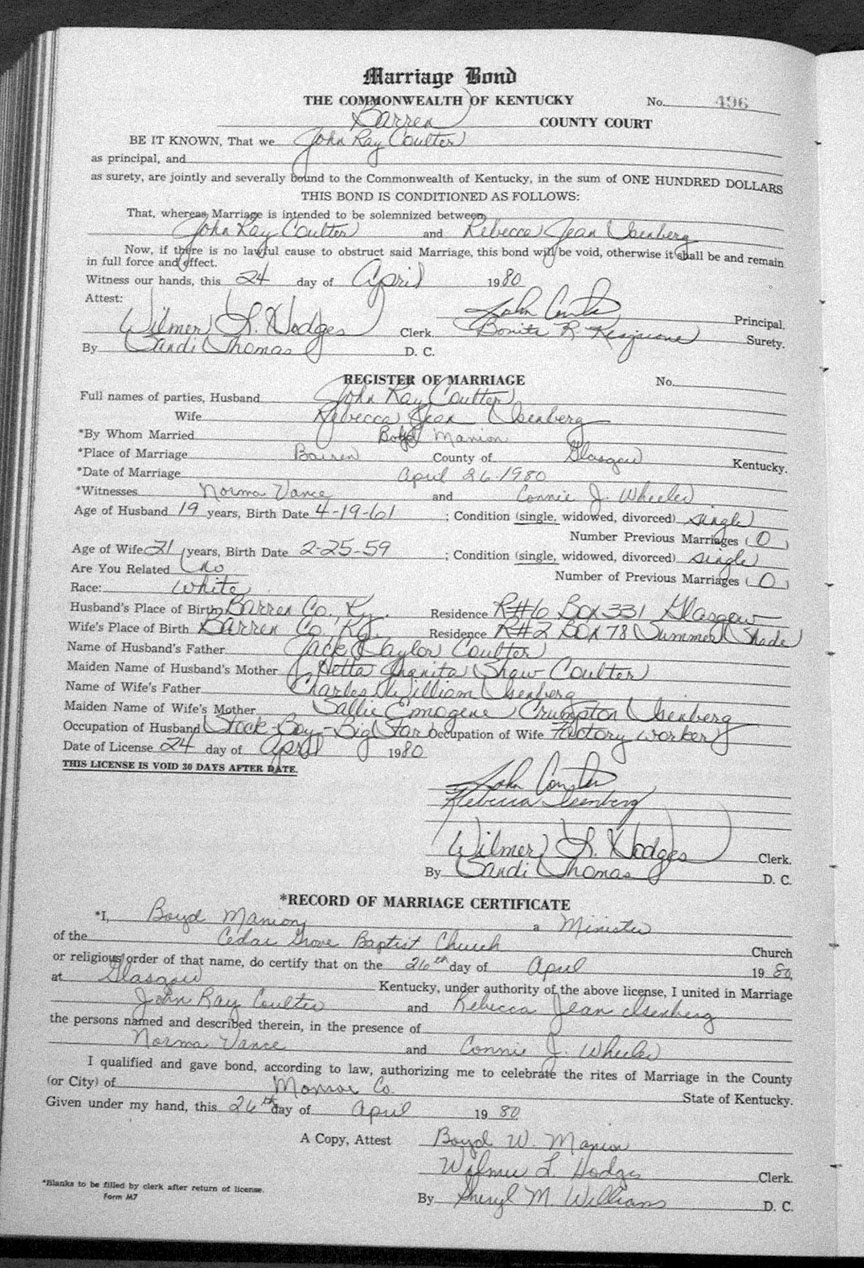 Marriage Bond
THE COMMONWEALTH OF KENTUCKY No. 496
Barren COUNTY COURT
BE IT KNOWN, That we John Ray Coulter
as principal, and
as surety, are jointly and severally bound to the Commonwealth of Kentucky, in the sum of ONE HUNDRED DOLLARS
THIS BOND IS CONDITIONED AS FOLLOWS:
That, whereas Marriage is intended to be solemnized between
John Ray Coulter and Rebecca Jean Isenberg
Now, if there is no lawful cause to obstruct said Marriage, this bond will be void, otherwise it shall be and remain
in full force and effect.
Witness our hands, this 24 day of April 1980
Attest:
John Coulter Principal.
Wilmer L. Hodges Clerk. Bonita R. Surety.
By Sandi Thomas D. C.
REGISTER OF MARRIAGE No.
Full names of parties, Husband John Ray Coulter
Wife Rebecca Jean Isenberg
*By Whom Married Boyd Manion
*Place of Marriage Barren County of Glasgow Kentucky.
*Date of Marriage April 26 1980
*Witnesses Norma Vance and Connie J. Wheeler
Age of Husband 19 years, Birth Date 4-19-61 ; Condition (single, widowed, divorced) single
Number Previous Marriages (0)
Age of Wife 21 years, Birth Date 2-25-59 ; Condition (single, widowed, divorced) single
Are You Related no Number of Previous Marriages (0)
Race: White
Husband's Place of Birth Barren Co, Ky. Residence R#6 Box 331 Glasgow
Wife's Place of Birth Barren Co, Ky. Residence R#2 Box 78 Summer Shade
Name of Husband's Father Jack Taylor Coulter
Maiden Name of Husband's Mother Hetta Juanita Shaw Coulter
Name of Wife's Father Charles William Isenberg
Maiden Name of Wife's Mother Sallie Emogene Crumpton Isenberg
Occupation of Husband Stock-Boy-Big Star Occupation of Wife Factory worker
Date of License 24 day of April 1980
THIS LICENSE IS VOID 30 DAYS AFTER DATE.
John Coulter
Rebecca Isenberg
Wilmer L. Hodges Clerk.
By Sandi Thomas D. C.
*RECORD OF MARRIAGE CERTIFICATE
*I, Boyd Manion a Minister
of the Cedar Grove Baptist Church Church
or religious order of that name, do certify that on the 26th day of April 1980,
at Glasgow Kentucky, under authority of the above license, I united in Marriage
John Ray Coulter and Rebecca Jean Isenberg
the persons named and described therein, in the presence of
Norma Vance and Connie J. Wheeler
I qualified and gave bond, according to law, authorizing me to celebrate the rites of Marriage in the County
(or City) of Monroe Co. State of Kentucky.
Given under my hand, this 26th day of April 1980
A Copy, Attest Boyd W. Manion
Wilmer L. Hodges Clerk.
*Blanks to be filled by clerk after return of license.
Form M7
By Sheryl M. Williams D. C.